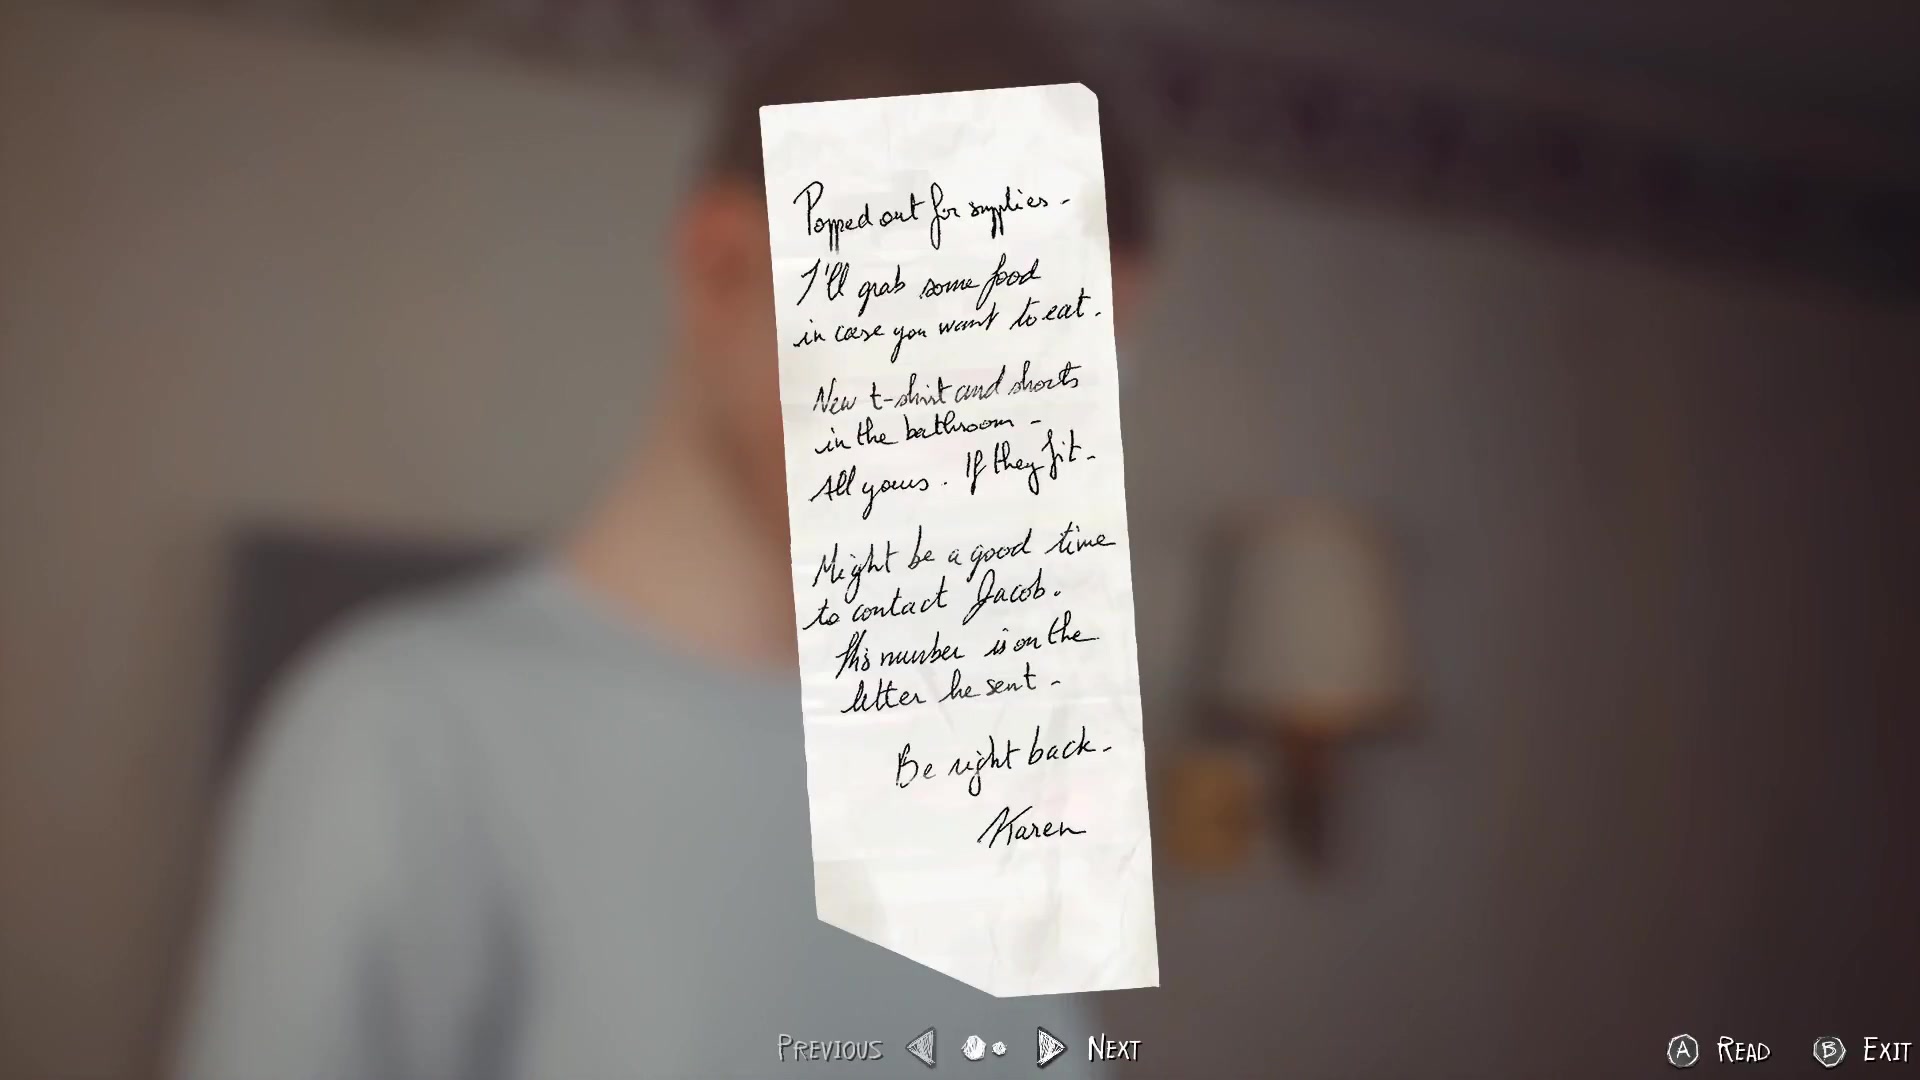 Popped out for supplies -
I'll grab some food
in case you want to eat.
New t-shirt and shorts
in the bathroom -
All yours. If they fit -
Might be a good time
to contact Jacob.
His number is on the
letter he sent -
Be right back -
Karen
PREVIOUS NEXT A READ B EXIT